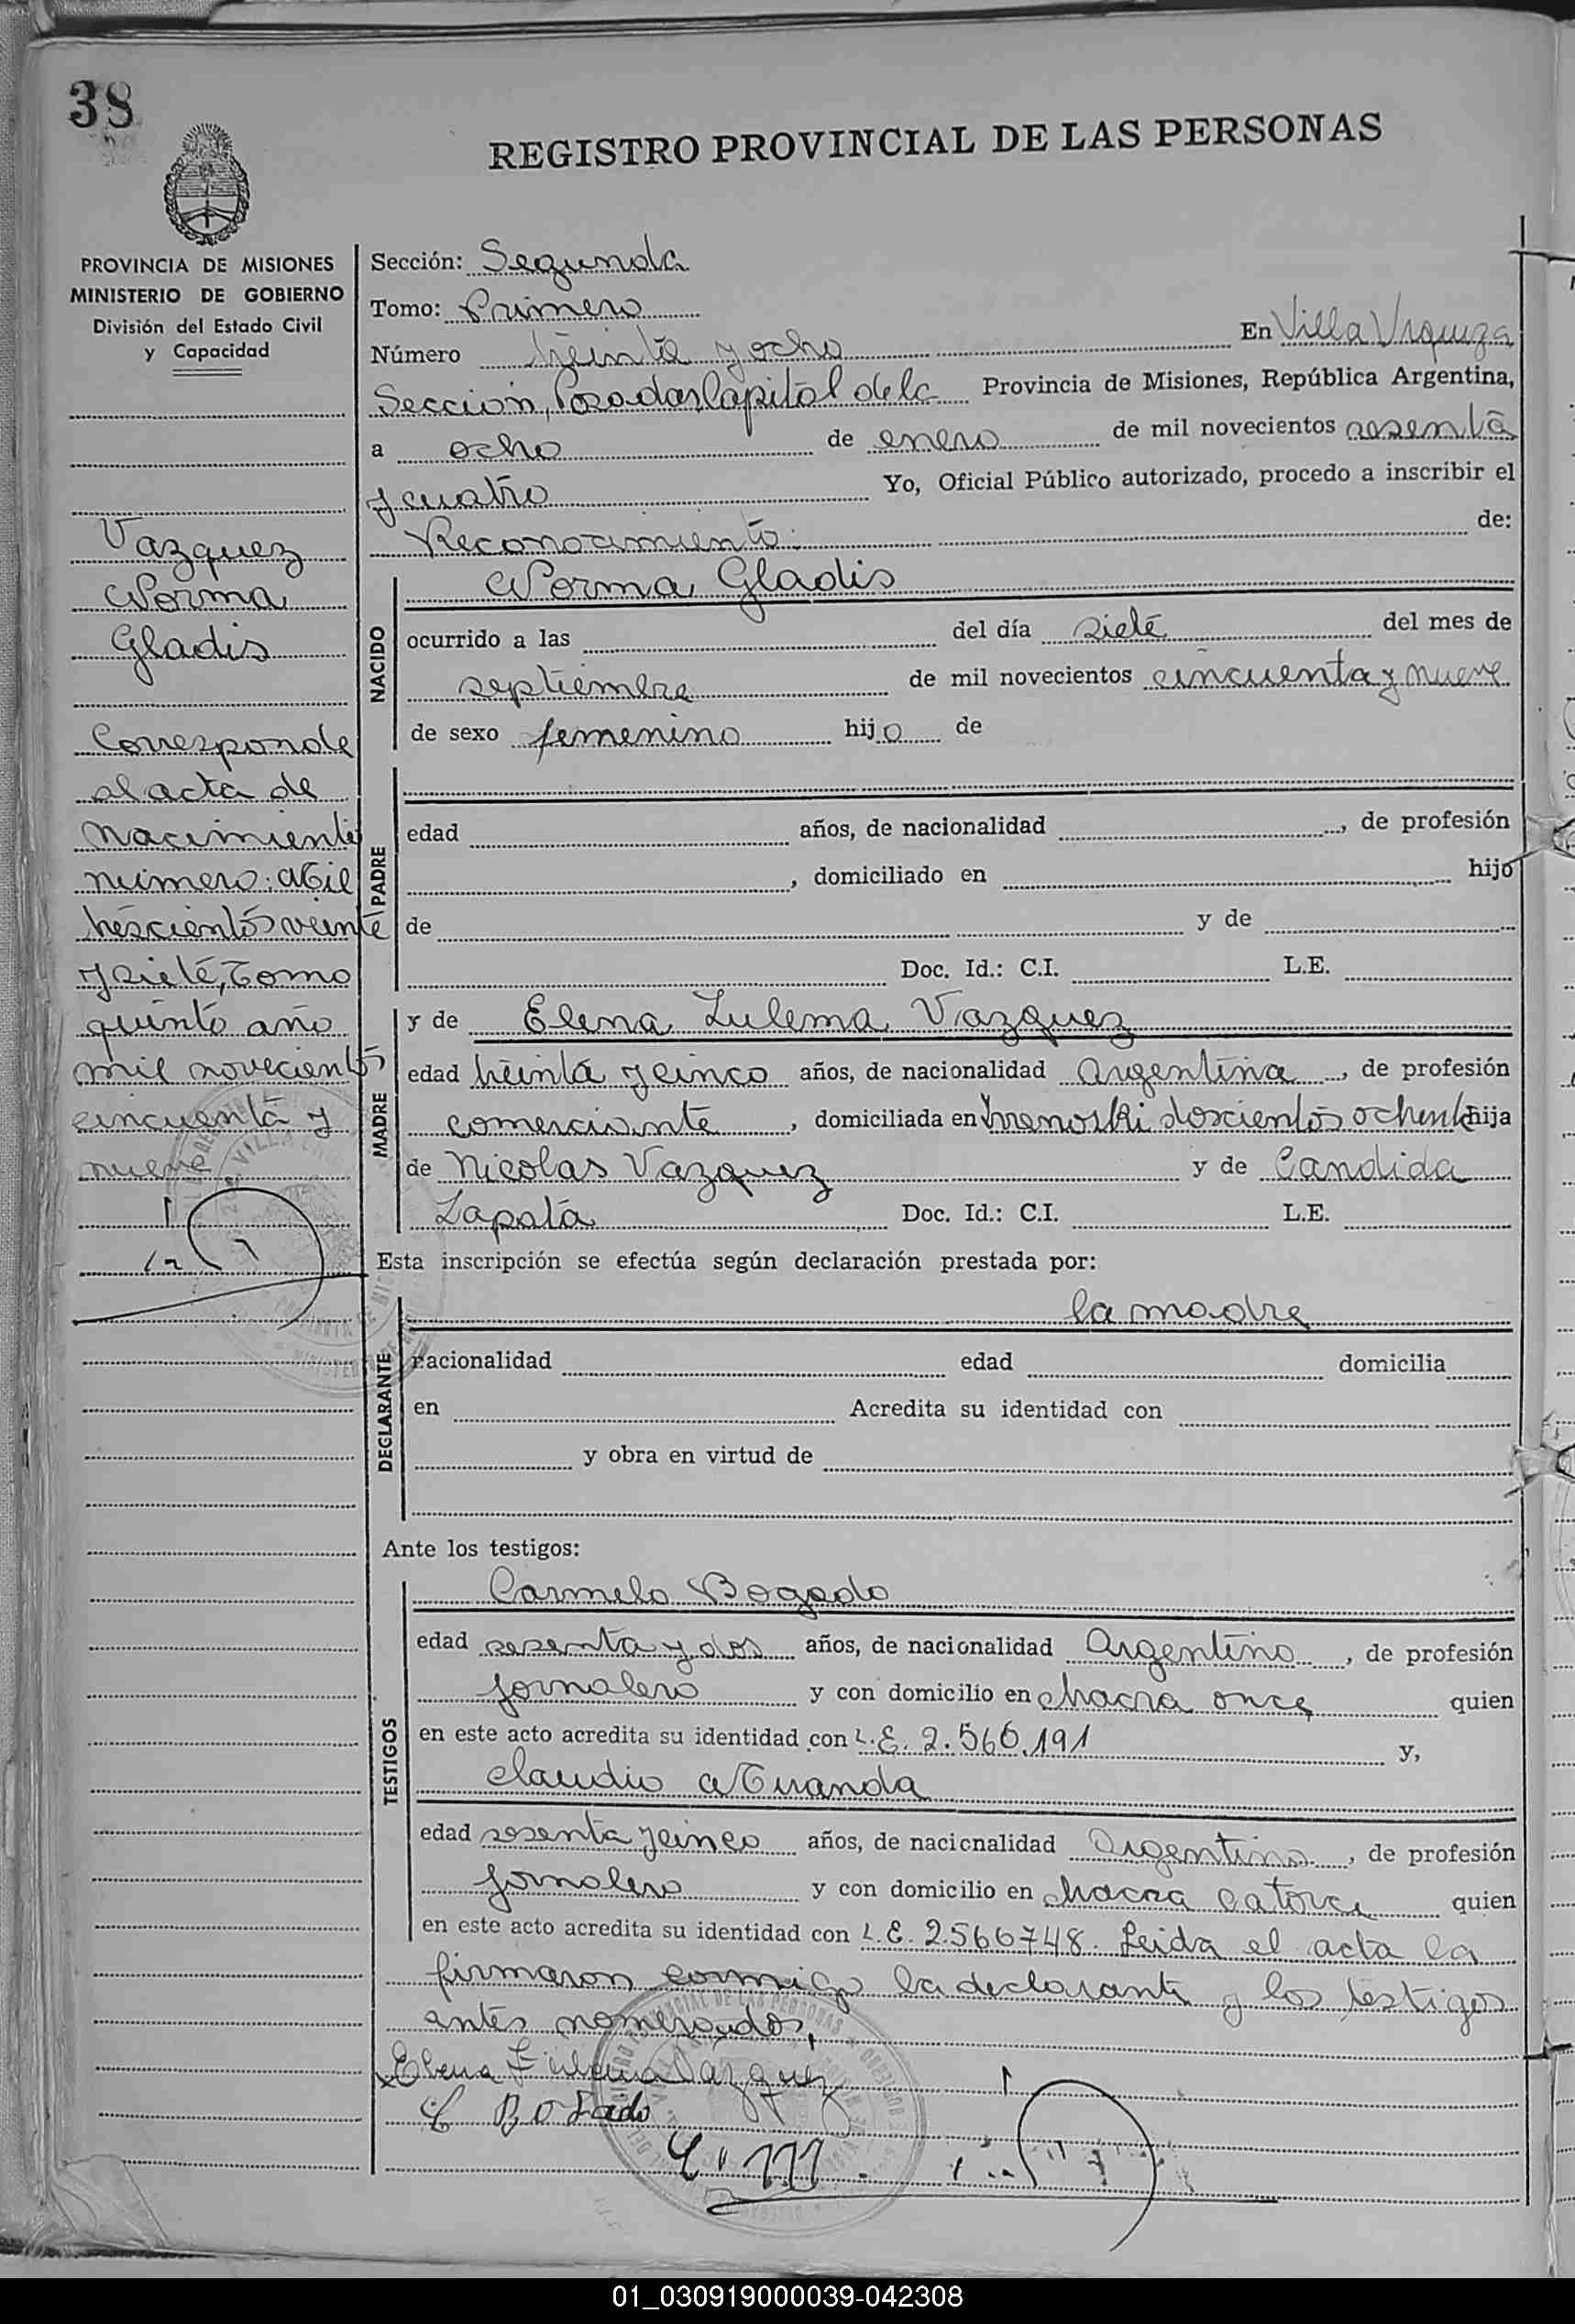 38
REGISTRO PROVINCIAL DE LAS PERSONAS
PROVINCIA DE MISIONES
MINISTERIO DE GOBIERNO
División del Estado Civil
y Capacidad
Vazquez
Norma
Gladis
Corresponde
al acta de
nacimiento
número: Mil
trescientos veinte
y siete, Tomo
quinto año
mil novecientos
cincuenta y
nueve
Sección: Segunda
Tomo: Primero
Número treinta y ocho En Villa Urquiza
Sección, Posadas Capital de la Provincia de Misiones, República Argentina,
a ocho de enero de mil novecientos sesenta
y cuatro Yo, Oficial Público autorizado, procedo a inscribir el
Reconocimiento de:
NACIDO
Norma Gladis
ocurrido a las del día siete del mes de
septiembre de mil novecientos cincuenta y nueve
de sexo femenino hija de
PADRE
edad años, de nacionalidad , de profesión
, domiciliado en hijo
de y de
Doc. Id.: C.I. L.E.
MADRE
y de Elena Zulema Vazquez
edad treinta y cinco años, de nacionalidad Argentina , de profesión
comerciante , domiciliada en doscientos ochenta hija
de Nicolas Vazquez y de Candida
Zapata Doc. Id.: C.I. L.E.
Esta inscripción se efectúa según declaración prestada por:
DECLARANTE
la madre
nacionalidad edad domicilia
en Acredita su identidad con
y obra en virtud de
Ante los testigos:
TESTIGOS
Carmelo Bogado
edad sesenta y dos años, de nacionalidad Argentino , de profesión
jornalero y con domicilio en chacra once quien
en este acto acredita su identidad con L.E. 2.566.191 y,
Claudio Miranda
edad sesenta y cinco años, de nacionalidad Argentino , de profesión
jornalero y con domicilio en chacra catorce quien
en este acto acredita su identidad con L.E. 2.566748. Leida el acta la
firmaron conmigo la declarante y los testigos
antes nomerados,
Elena Zulema Vazquez
C Bogado
01_030919000039-042308